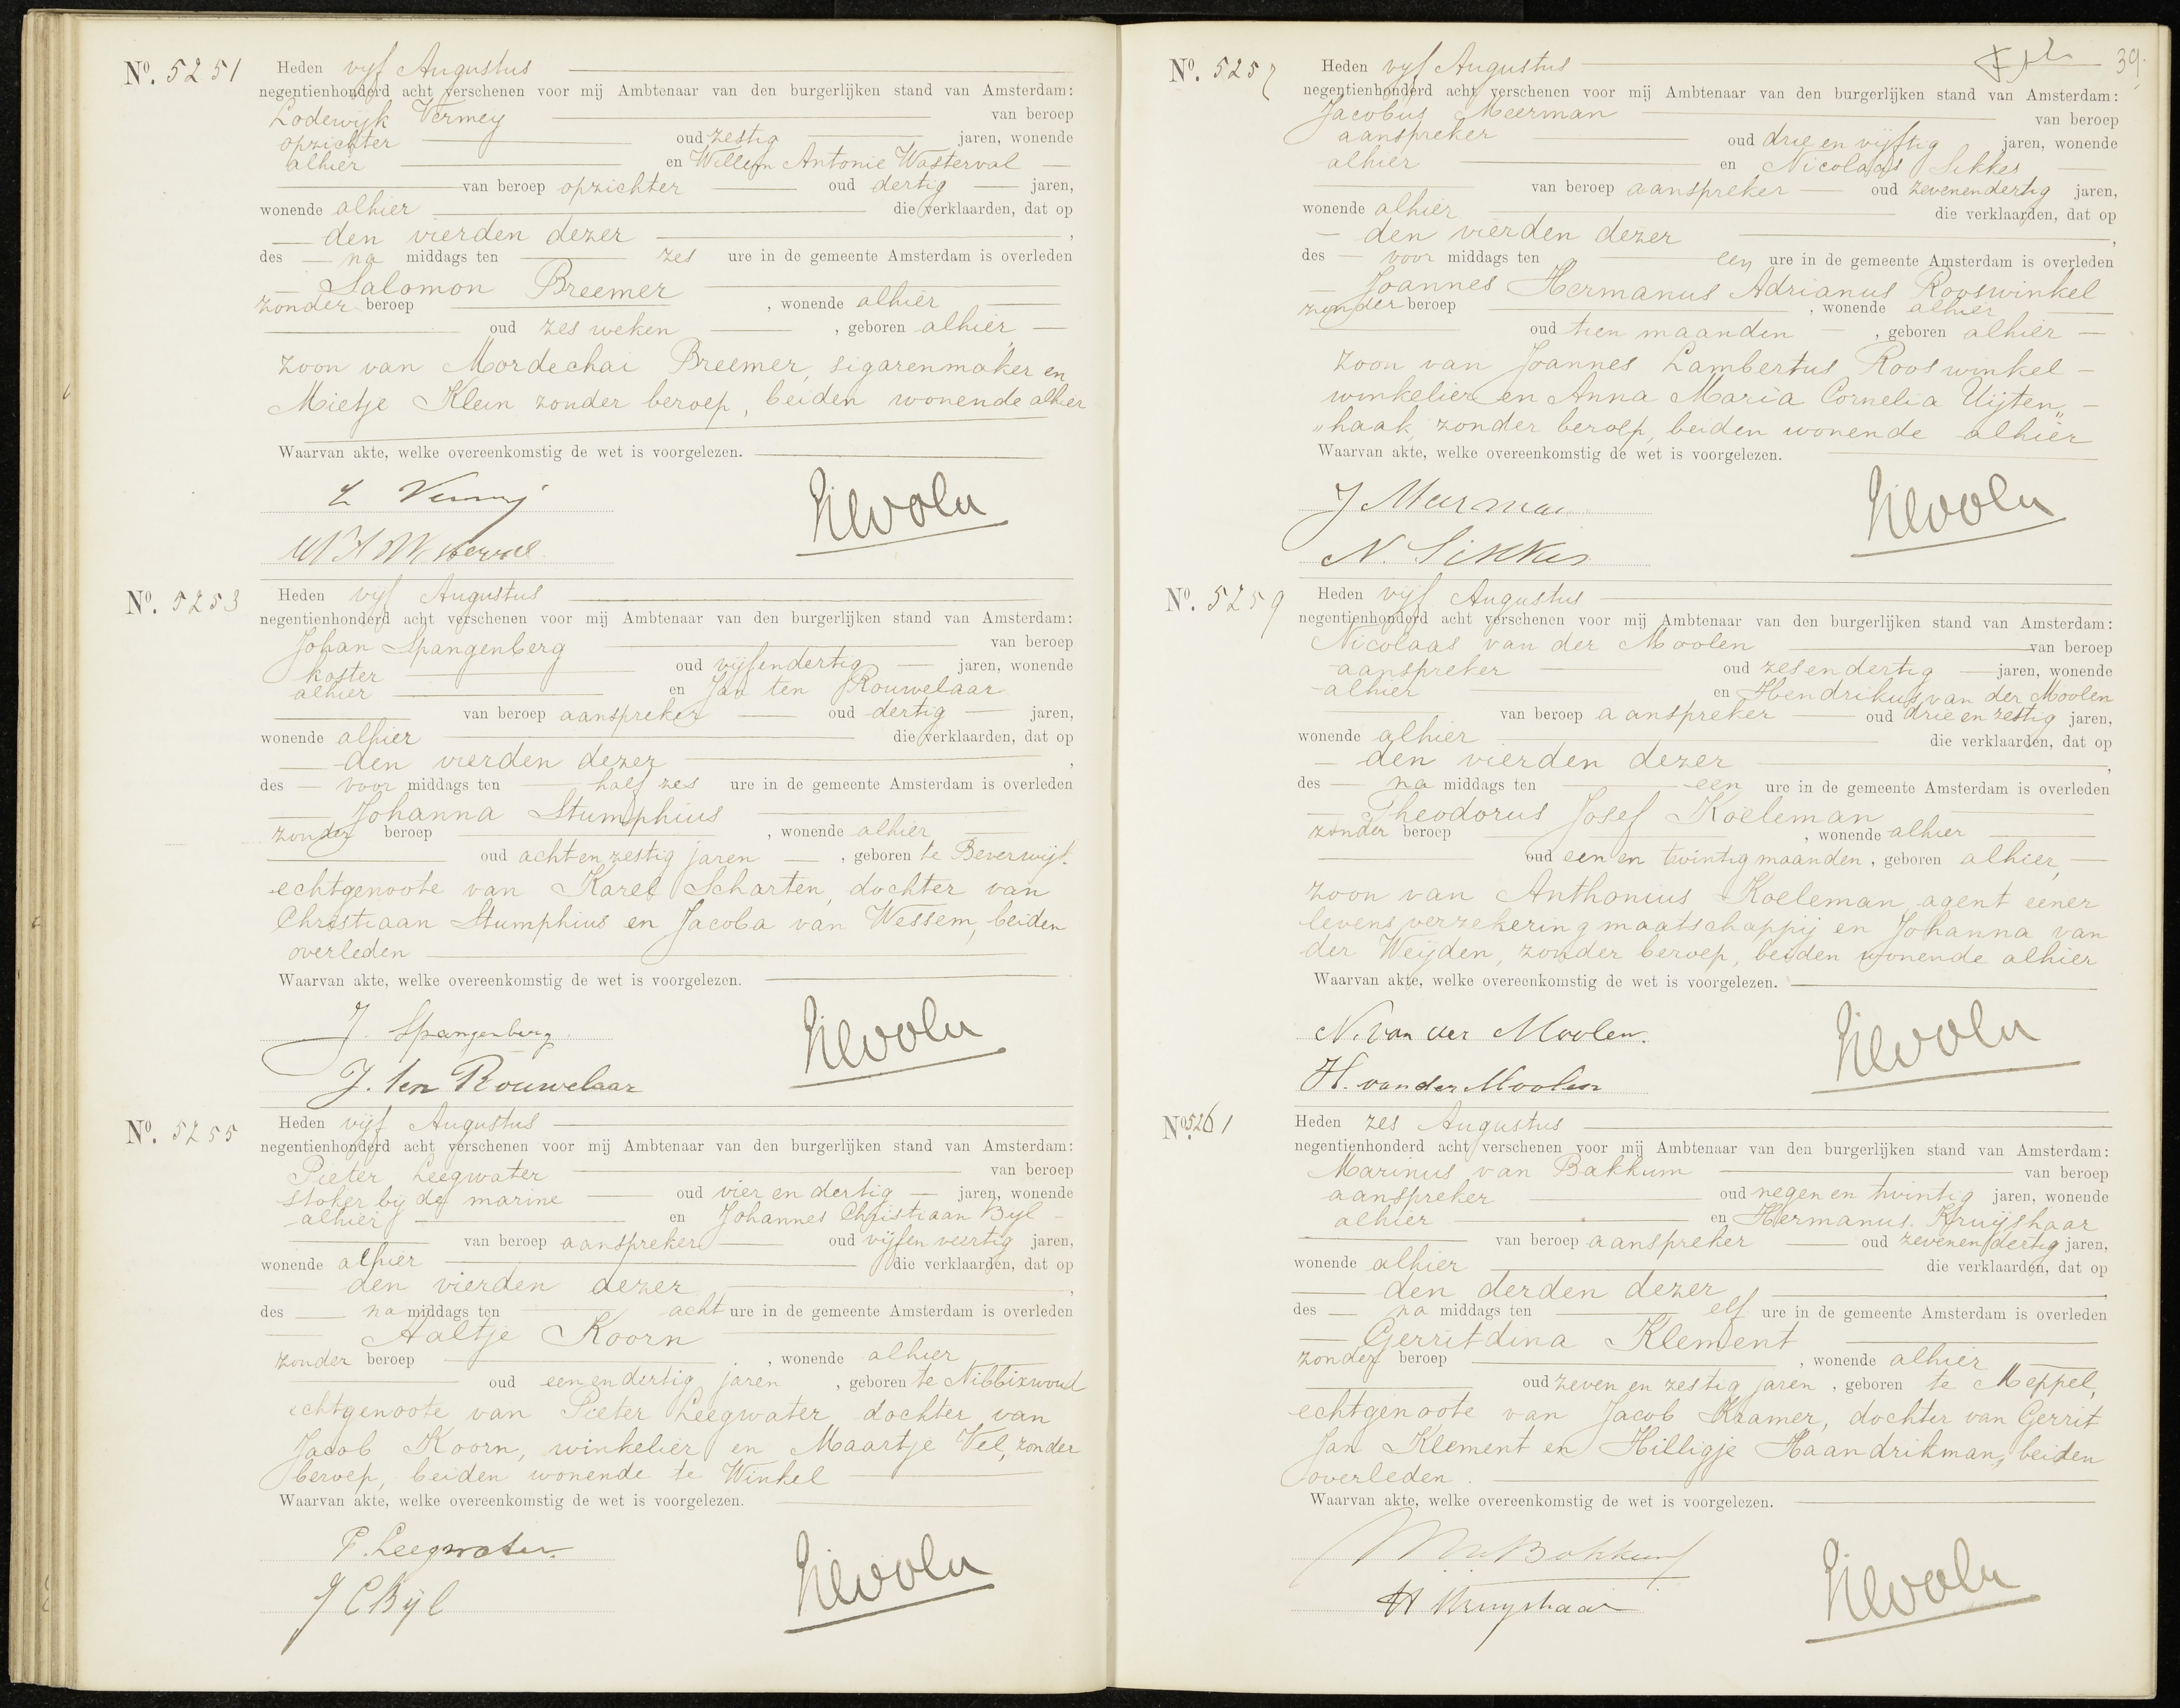 Nº. 5251
Heden vijf Augustus
negentienhonderd acht verschenen voor mij Ambtenaar van den burgerlijken stand van Amsterdam:
Lodewijk Vermey van beroep
opzichter oud zestig jaren, wonende
alhier en Willem Antonie Wasterval
van beroep opzichter oud dertig jaren,
wonende alhier die verklaarden, dat op
den vierden dezer,
des na middags ten zes ure in de gemeente Amsterdam is overleden
Salomon Breemer
zonder beroep, wonende alhier
oud zes weken, geboren alhier,
zoon van Mordechai Breemer, sigarenmaker en
Mietje Klein zonder beroep, beiden wonende alhier
Waarvan akte, welke overeenkomstig de wet is voorgelezen.
L Vermij
Nº. 5253
Heden vijf Augustus
negentienhonderd acht verschenen voor mij Ambtenaar van den burgerlijken stand van Amsterdam:
Johan Spangenberg van beroep
koster oud vijfendertig jaren, wonende
alhier en Jan ten Rouwelaar
van beroep aanspreker oud dertig jaren,
wonende alhier die verklaarden, dat op
den vierden dezer,
des voor middags ten half zes ure in de gemeente Amsterdam is overleden
Johanna Stumphius
zonder beroep, wonende alhier
oud achtenzestig jaren, geboren te Beverwijk.
echtgenoote van Karel Scharten, dochter van
Christiaan Stumphius en Jacoba van Wessem, beiden
overleden
Waarvan akte, welke overeenkomstig de wet is voorgelezen.
J. Spangenberg.
J. ten Rouwelaar
Nº. 5255
Heden vijf Augustus
negentienhonderd acht verschenen voor mij Ambtenaar van den burgerlijken stand van Amsterdam:
Pieter Leegwater van beroep
stoker bij de marine oud vier en dertig jaren, wonende
alhier en Johannes Christiaan Byl
van beroep aanspreker oud vijfen veertig jaren,
wonende alhier die verklaarden, dat op
den vierden dezer,
des na middags ten acht ure in de gemeente Amsterdam is overleden
Aaltje Koorn
zonder beroep, wonende alhier
oud een en dertig jaren, geboren te Nibbixwoud
echtgenoote van Pieter Leegwater dochter van
Jacob Koorn, winkelier en Maartje Vel, zonder
beroep, beiden wonende te Winkel
Waarvan akte, welke overeenkomstig de wet is voorgelezen.
P. Leegwater.
J C Byl
39.
Nº. 5257
Heden vijf Augustus
negentienhonderd acht verschenen voor mij Ambtenaar van den burgerlijken stand van Amsterdam:
Jacobus Meerman van beroep
aanspreker oud drie en vijftig jaren, wonende
alhier en Nicolaas Sikkes
van beroep aanspreker oud zevenendertig jaren,
wonende alhier die verklaarden, dat op
den vierden dezer,
des voor middags ten een ure in de gemeente Amsterdam is overleden
Joannes Hermanus Adrianus Rooswinkel
zonder beroep, wonende alhier
oud tien maanden, geboren alhier
zoon van Joannes Lambertus Rooswinkel
winkelier en Anna Maria Cornelia Uijten„
„haak, zonder beroep, beiden wonende alhier
Waarvan akte, welke overeenkomstig de wet is voorgelezen.
J Meerman
N. Sikkes
Nº. 5259
Heden vijf Augustus
negentienhonderd acht verschenen voor mij Ambtenaar van den burgerlijken stand van Amsterdam:
Nicolaas van der Moolen van beroep
aanspreker oud zesendertig jaren, wonende
alhier en Hendrikus van der Moolen
van beroep aanspreker oud drie en zestig jaren,
wonende alhier die verklaarden, dat op
den vierden dezer,
des na middags ten een ure in de gemeente Amsterdam is overleden
Theodorus Josef Koeleman
zonder beroep, wonende alhier
oud een en twintig maanden, geboren alhier,
zoon van Anthonius Koeleman agent eener
levensverzekering maatschappij en Johanna van
der Weijden, zonder beroep, beiden wonende alhier
Waarvan akte, welke overeenkomstig de wet is voorgelezen.
N. van der Moolen.
H. van der Moolen
Nº. 5261
Heden zes Augustus
negentienhonderd acht verschenen voor mij Ambtenaar van den burgerlijken stand van Amsterdam:
Marinus van Bakkum van beroep
aanspreker oud negen en twintig jaren, wonende
alhier en Hermanus Kruijshaar
van beroep aanspreker oud zevenen dertig jaren,
wonende alhier die verklaarden, dat op
den derden dezer,
des na middags ten elf ure in de gemeente Amsterdam is overleden
Gerritdina Klement
zonder beroep, wonende alhier
oud zeven en zestig jaren, geboren te Meppel,
echtgenoote van Jacob Kramer, dochter van Gerrit
Jan Klement en Hilligje Haandrikman, beiden
overleden.
Waarvan akte, welke overeenkomstig de wet is voorgelezen.
M v Bakkum
H Kruijshaar